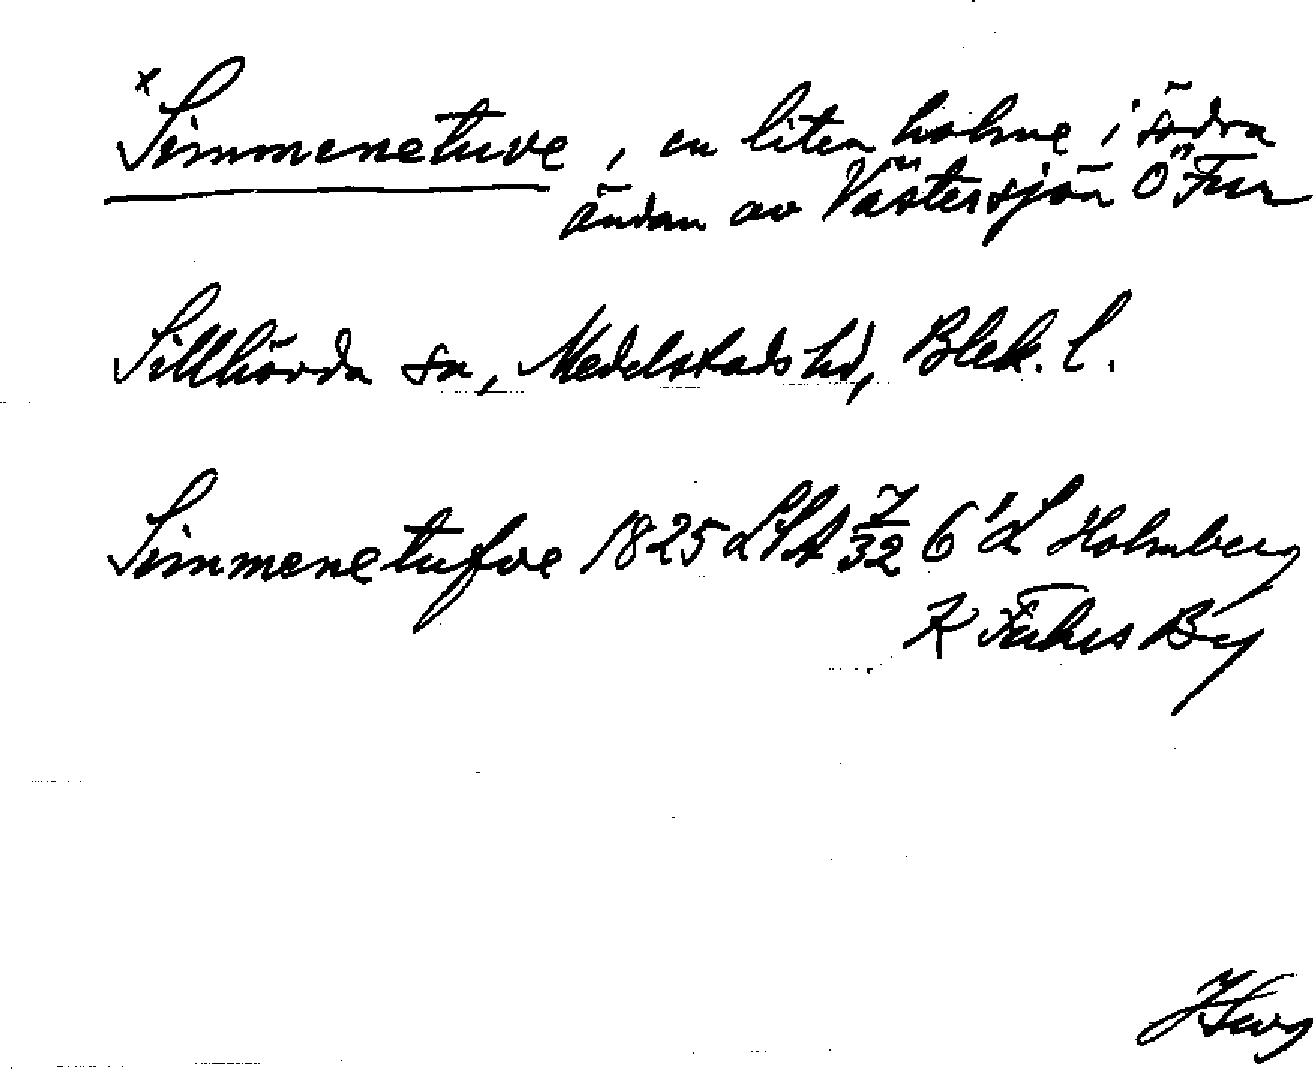 x Simmenetuve, en liten holme i södra
ändan av Västersjön Ö Fur
Sillhövda sn, Medelstads hd, Blek. l.
Simmenetufve 1825 LSA 7/32 6 L Holmberg
K By